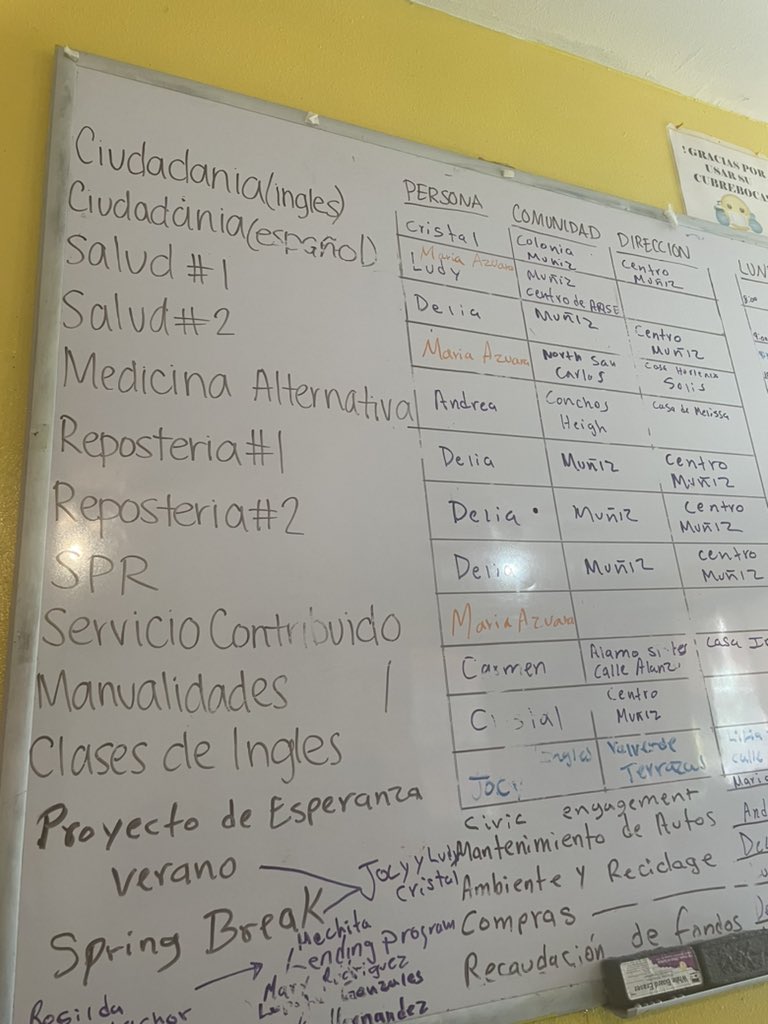 ! GRACIAS POR
USAR SU
CUBREBOCAS
Ciudadania (ingles)
Ciudadania (español)
Salud #1
Salud #2
Medicina Alternativa
Reposteria #1
Reposteria #2
SPR
Servicio Contribuido
Manualidades
Clases de Ingles
Proyecto de Esperanza
verano
Spring Break
Rosilda
PERSONA COMUNIDAD DIRECCION
Cristal Colonia Muñiz Centro Muñiz
Maria Azuara
Ludy Muñiz Centro de ARISE
Delia Muñiz Centro Muñiz
Maria Azuara North San Carlos Casa Hortencia Solis
Andrea Conchos Heigh Casa de Melissa
Delia Muñiz Centro Muñiz
Delia Muñiz Centro Muñiz
Delia Muñiz Centro Muñiz
Maria Azuara
Carmen Alamo Calle Alaniz Casa
Cristal Centro Muñiz
Jocy Ingles Valverde Terrazas calle
Civic engagement
Mantenimiento de Autos
Ambiente y Reciclage
Compras
Recaudación de fondos
Jocy y Ludy
Cristal
Mechita
Lending program
Mary Rodriguez
Gonzales
Hernandez
White Board Eraser